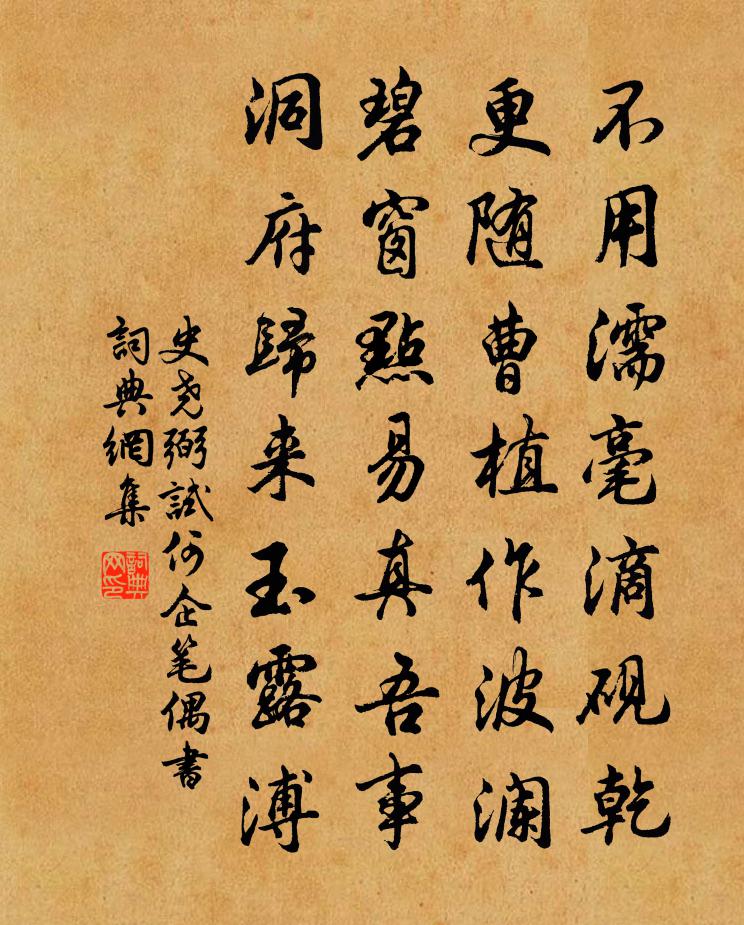 不用濡毫滴砚乾
更随曹植作波澜
碧窗點易真吾事
洞府歸来玉露溥
史尧弼試何企笔偶書
詞典網集
詞典网印